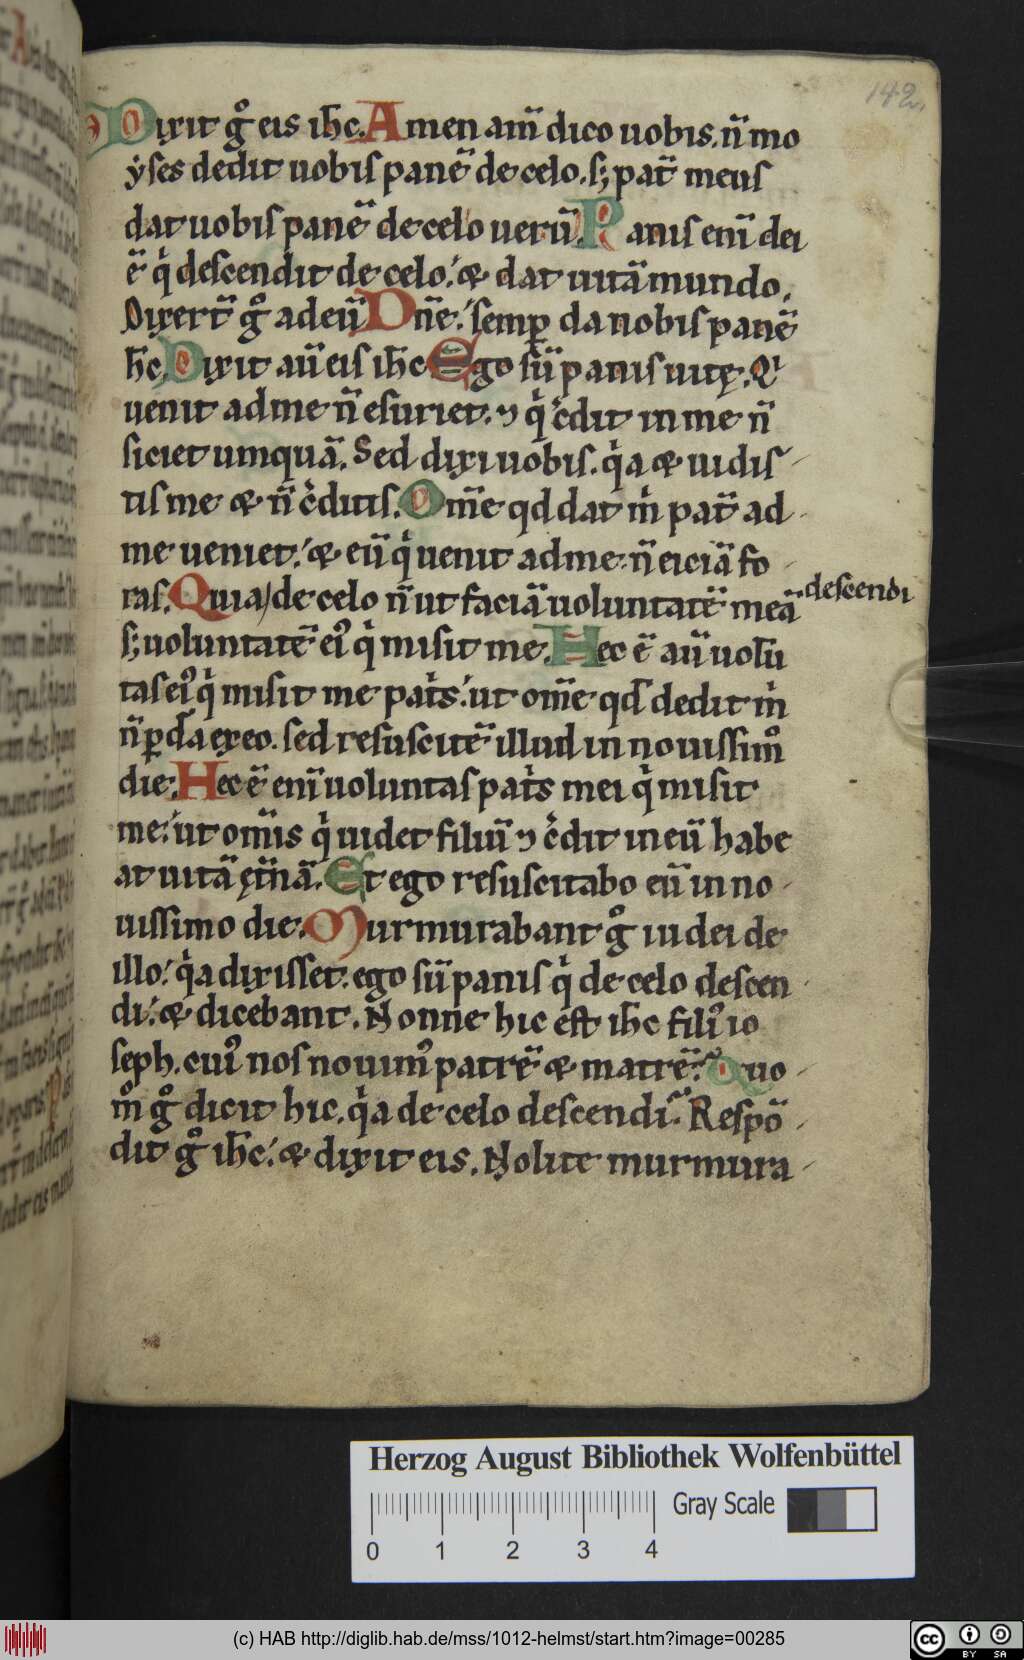 142.
Dixit gͦ eis ih̅c. Amen am̅ dico uobis. n̅ mo
ẏses dedit uobis pane̅ de celo. s; pat̅ meus
dat uobis pane̅ de celo ueru̅. Panis eni̅ dei
e̅ qi̍ descendit de celo.' & dat uita̅ mundo.
Dixert̅ gͦ ad eu̅ Dn̅e.' semꝑ da nobis pane̅
h̅c. Dixit au̅ eis ih̅c Ego su̅ panis uitę. Qi
uenit ad me n̅ esuriet. ⁊ qͥ c̍dit in me n̅
siciet umqua̅. Sed dixi uobis. qͥa & uidis-
tis me & n̅ c̍ditis. Om̅e qd dat m̍ pat̅ ad-
me ueniet.' & eu̅ qͥ uenit ad me n̅ eicia̅ fo-
ras. Quia de celo n̅ ut facia̅ uoluntate̅ mea̅ descendi
s; uoluntate̅ ei᾽ qͥ misit me. Hec e̅ au̅ uolu̅
tas ei᾽ qͥ misit me pat̍s.' ut om̅e qd dedit m̍
n̅ ꝑda exeo. sed resuscite̅ illud in nouissimͦ
die. Hec e̅ eni̅ uoluntas pat̍s mei qͥ misit
me.' ut om̅is qͥ uidet filiu̅ ⁊ c̍dit in eu̅ habe
at uita̅ ęt̅na̅. Et ego resuscitabo eu̅ in no-
uissimo die. Murmurabant gͦ iudei de
illo.' qͥa dixisset. ego su̅ panis qͥ de celo descen
di.' & dicebant. Nonne hic est ih̅c fili᾽ io
seph. cui᾽ nos nouim᾽ patre̅ & matre̅? Quo-
mͦ gͦ dicit hic. qͥa de celo descendi? Respo̅-
dit gͦ ih̅c.' & dixit eis. Nolite murmura-
Herzog August Bibliothek Wolfenbüttel
Gray Scale
0 1 2 3 4
(c) HAB http://diglib.hab.de/mss/1012-helmst/start.htm?image=00285
cc BY SA